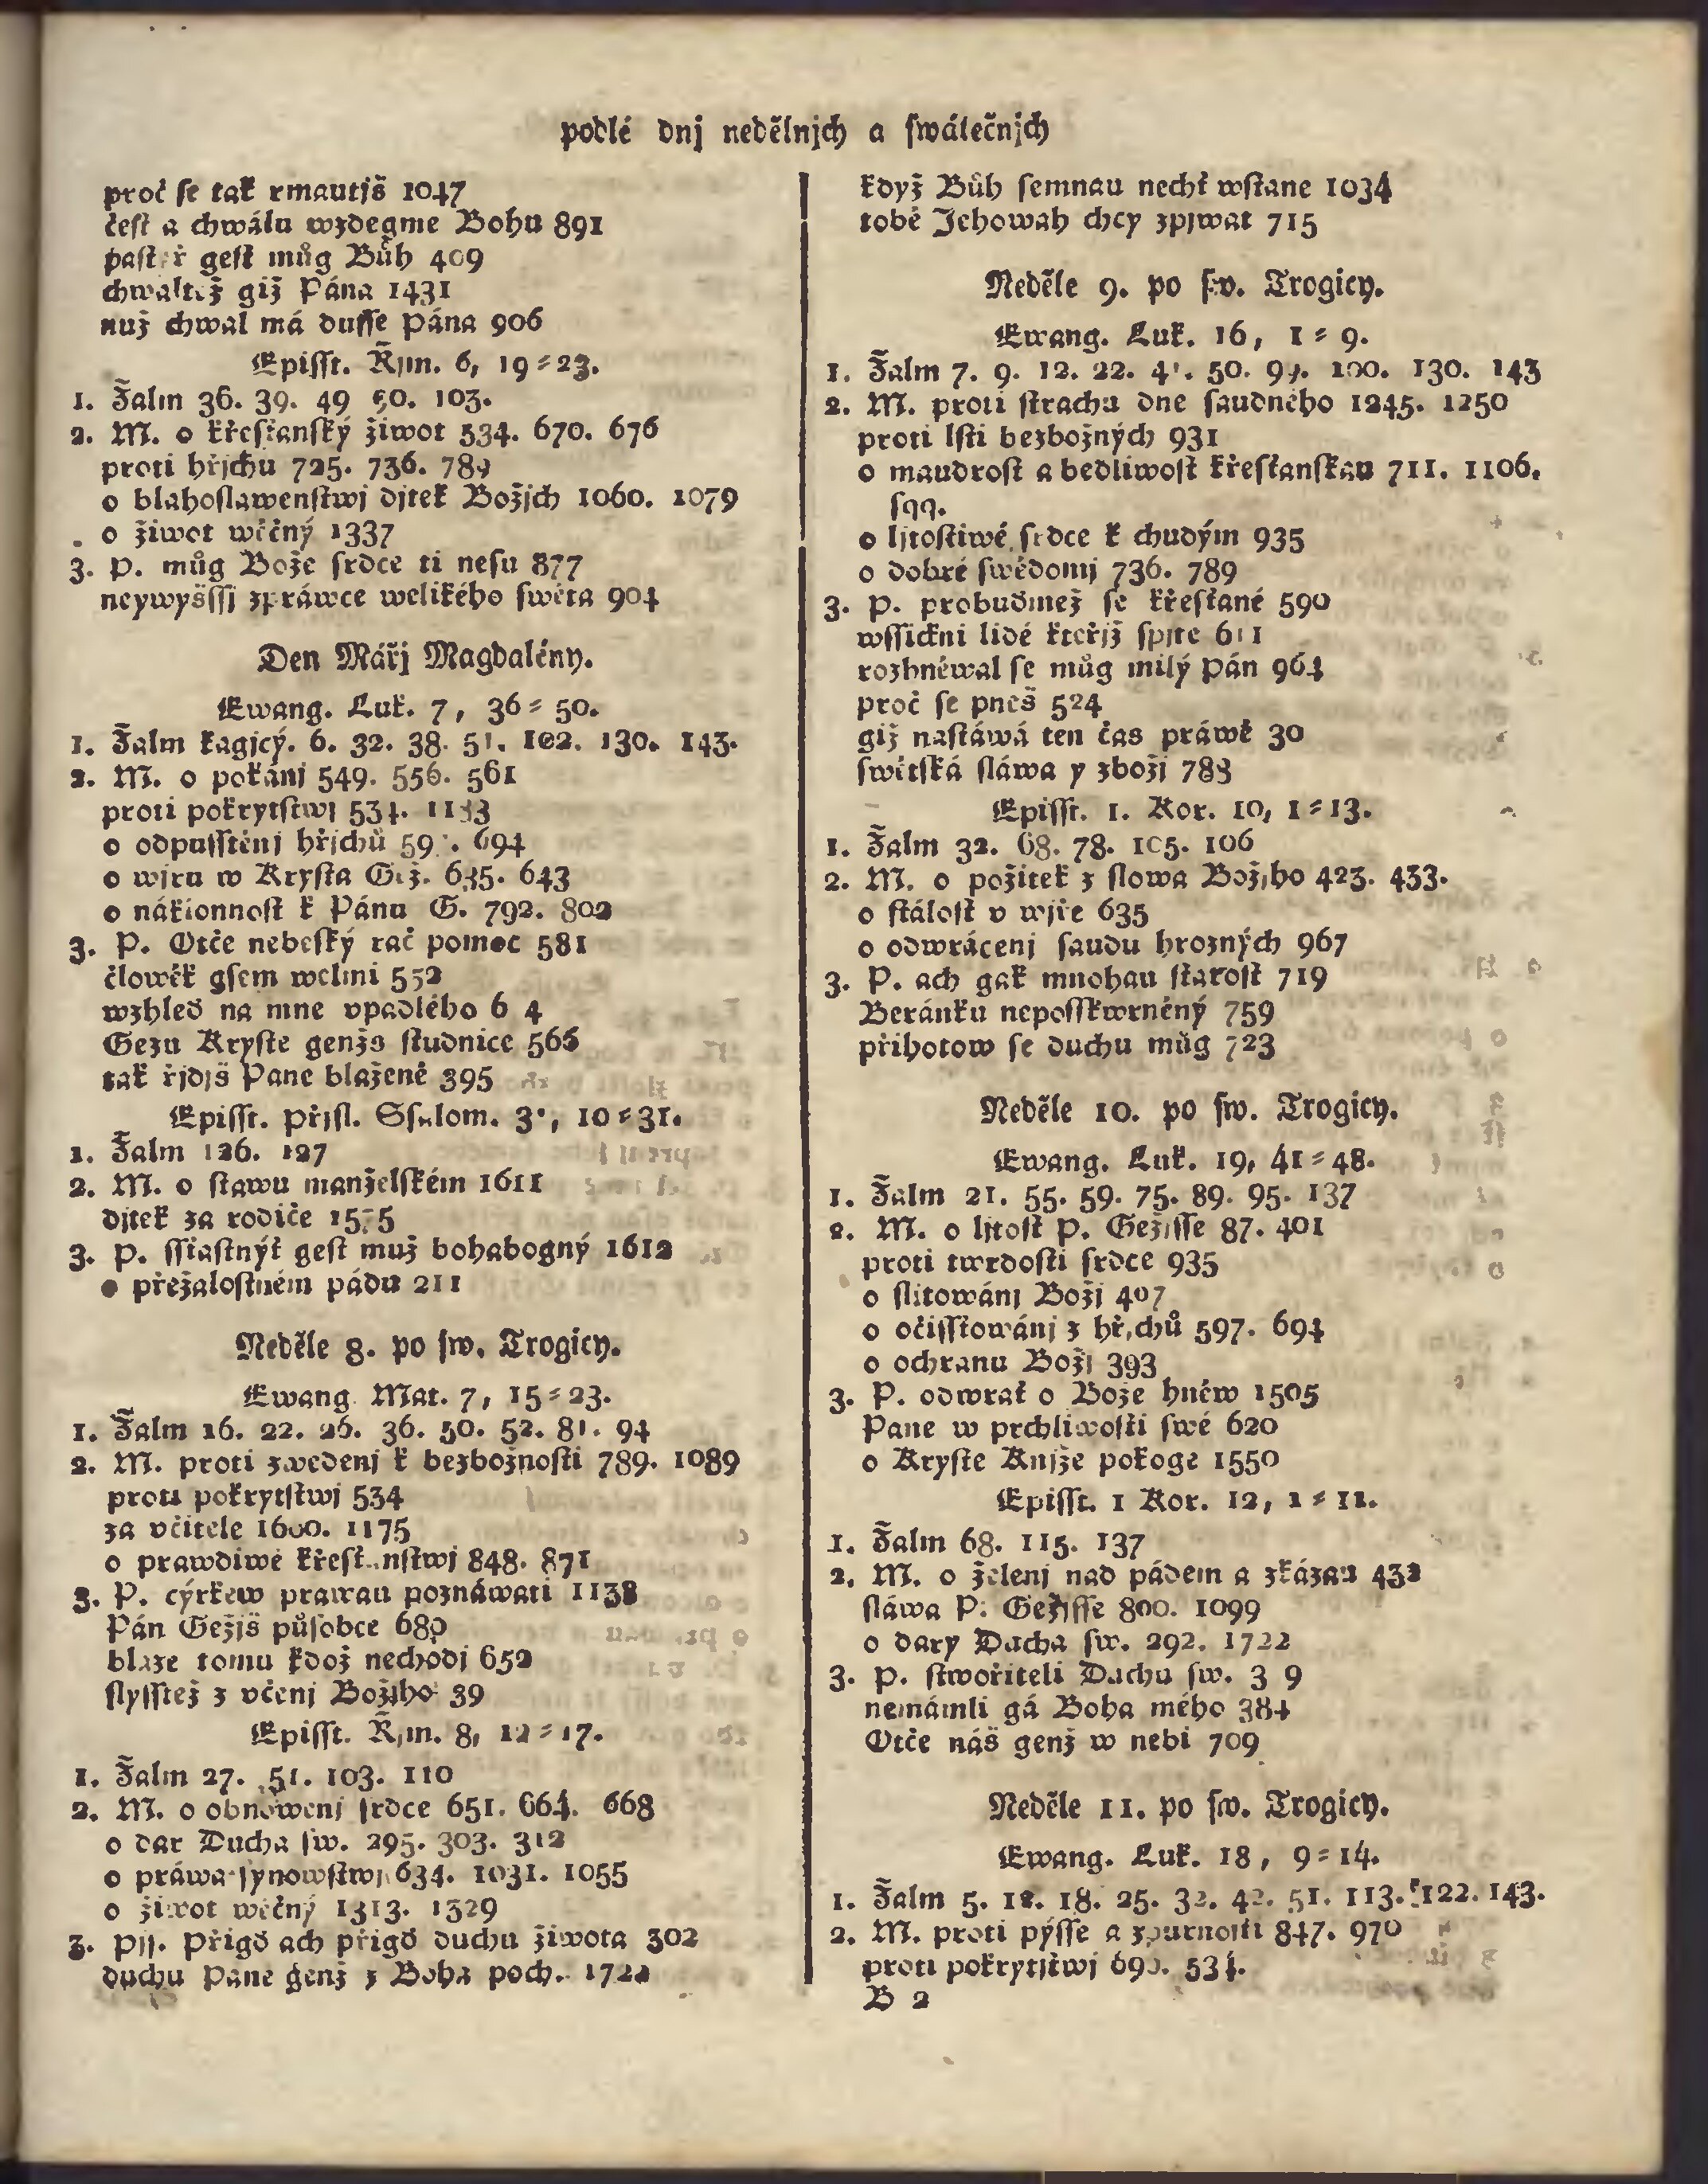 podlé dnj nedělnjch a swátečnjch
proč se tak rmautjš 1047
čest a chwálu wzdegme Bohu 891
gest můg Bůh 409
giž Pána 1431
nuž chwal má dusse Pána 906
Episst. Řjm. 6, 19-23.
1. Žalm 36. 39. 49 50. 103.
2. M. o křesťanský žiwot 534. 670. 676
proti hřjchu 725. 736. 789
o blahoslawenstwj djtek Božjch 1060. 1079
o žiwot wěčný 1337
3. P. můg Bože srdce ti nesu 877
neywyšssj zpráwce welikého swěta 904
Den Mářj Magdalény.
Ewang. Luk. 7, 36-50.
1. Žalm kagjcý. 6. 32. 38. 51. 102. 130. 143.
2. M. o pokánj 549. 556. 561
proti pokrytstwj 534.
o odpusstěnj hřjchů 694
o wjru w Krysta Gež. 635. 643
o náklonnost k Pánu G. 792. 802
3. P. Otče nebeský rač pomoc 581
člowěk gsem welmi 552
wzhled na mne vpadlého
Gezu Kryste genžs studnice 566
tak řjdjš Pane blaženě 395
Episst. přjsl. Ssalom. 10-31.
1. Žalm 126. 127
2. M. o stawu manželském 1611
djtek za rodiče
3. P. ssťastnýť gest muž bohabogný 1612
o přežalostném pádu 211
Neděle 8. po sw. Trogicy.
Ewang. Mat. 7, 15-23.
1. Žalm 16. 22. 26. 36. 50. 52. 81. 94
2. M. proti zwedenj k bezbožnosti 789. 1089
proti pokrytstwj 534
za včitele 1600. 1175
o prawdiwé křesťanstwj 848. 871
3. P. cýrkew prawau poznáwati 1138
Pán Gežjš působce 680
blaze tomu kdož nechodj 652
slysstež z včenj Božjho 39
Episst. Řjm. 8, 12-17.
1. Žalm 27. 51. 103. 110
2. M. o obnowenj srdce 651. 664. 668
o dar Ducha sw. 295. 303. 312
o práwa synowstwj 634. 1031. 1055
o žiwot wěčný 1313. 1329
3. Pjs. Přigď ach přigď duchu žiwota 302
duchu Pane genž z Boha poch. 1722
když Bůh semnau nechť wstane 1034
tobě Jehowah chcy zpjwat 715
Neděle 9. po sw. Trogicy.
Ewang. Luk. 16, 1-9.
1. Žalm 7. 9. 12. 22. 50. 100. 130. 143
2. M. proti strachu dne saudného 1245. 1250
proti lsti bezbožných 931
o maudrost a bedliwost křesťanskau 711. 1106.
sqq.
o ljtostiwé srdce k chudým 935
o dobré swědomj 736. 789
3. P. probuďmež se křesťané 590
wssickni lidé kteřjž spjte 611
rozhněwal se můg milý Pán 964
proč se pneš 524
giž nastáwá ten čas práwě 30
swětská sláwa y zbožj 788
Episst. 1. Kor. 10, 1-13.
1. Žalm 32. 68. 78. 105. 106
2. M. o požitek z slowa Božjho 423. 433.
o stálost v wjře 635
o odwrácenj saudu hrozných 967
3. P. ach gak mnohau starost 719
Beránku neposskwrněný 759
přihotow se duchu můg 723
Neděle 10. po sw. Trogicy.
Ewang. Luk. 19, 41-48.
1. Žalm 21. 55. 59. 75. 89. 95. 137
2. M. o ljtost P. Gežjsse 87. 401
proti twrdosti srdce 935
o slitowánj Božj 407
o očisstowánj z hřjchů 597. 694
o ochranu Božj 393
3. P. odwrať o Bože hněw 1505
Pane w prchliwosti swé 620
o Kryste Knjže pokoge 1550
Episst. 1 Kor. 12, 1-11.
1. Žalm 68. 115. 137
2. M. o želenj nad pádem a zkázau 432
sláwa P. Gežjsse 800. 1099
o dary Ducha sw. 292. 1722
3. P. stwořiteli Duchu sw.
nemámli gá Boha mého 384
Otče náš genž w nebi 709
Neděle 11. po sw. Trogicy.
Ewang. Luk. 18, 9-14.
1. Žalm 5. 12. 18. 25. 32. 42. 51. 113. 122. 143.
2. M. proti pýsse a zpurnosti 847. 970
proti pokrytstwj 534.
B 2